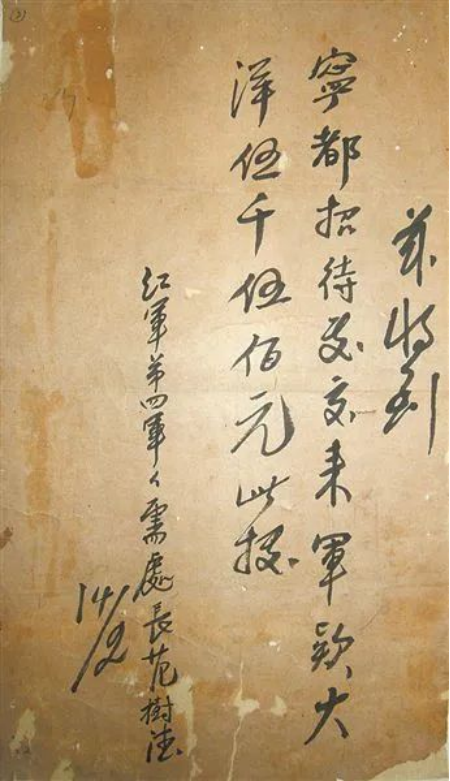 兹收到
寧都招待處交来軍欵大
洋伍千伍佰元此據
红軍第四軍々需處長范樹德
14/2